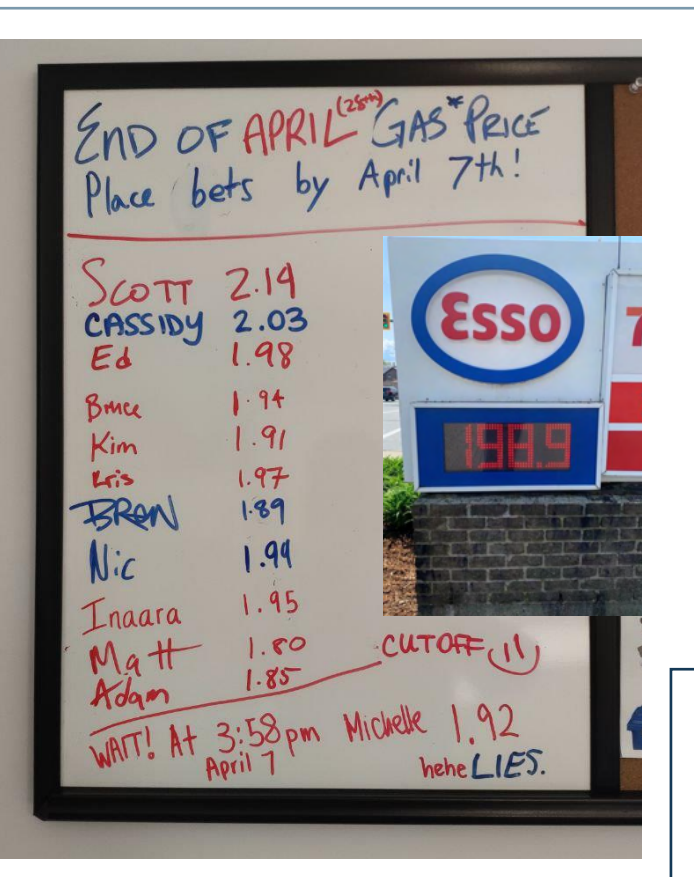 END OF APRIL (28th) GAS* PRICE
Place bets by April 7th!
SCOTT 2.14
CASSIDY 2.03
Ed 1.98
Bruce 1.94
Kim 1.91
Kris 1.97
BREN 1.89
Nic 1.94
Inaara 1.95
Matt 1.80
Adam 1.85
CUTOFF
WAIT! At 3:58pm Michelle 1.92
April 7
hehe LIES.
Esso
198.9
7